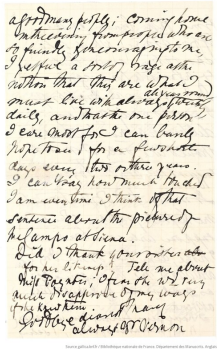 a good many people; coming home
intervening from people who are
so friendly & encouraging to me,
I felt a sort of rage at the
notion that these are what I
must live with always, always and
daily, and that the one person
I care most for I can barely
hope to see for a few short
days every two or three years.
I can't say how much touched
I am every time I think of that
sentence about the picture of
the Campo at Siena.
Did I thank your sister
for her letter? Tell me about
Miss Paynter; I fear she will very
much disapprove of my ways
if she knew them
Goodbye dearest Mary
always yr Vernon
Source gallica.bnf.fr / Bibliothèque nationale de France. Département des Manuscrits.